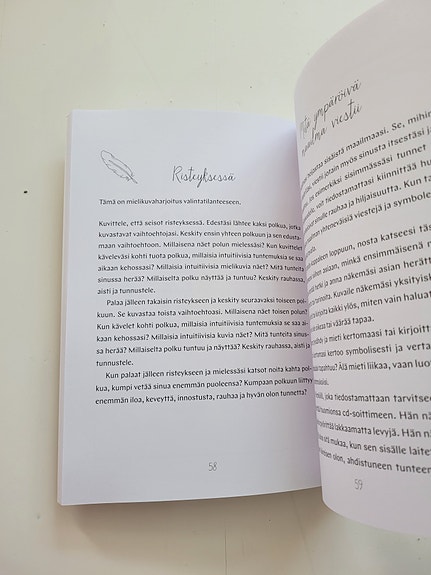 Risteyksessä
Tämä on mielikuvaharjoitus valintatilanteeseen,
Kuvittele, että seisot risteyksessä. Edestäsi lähtee kaksi polkua, jotka
kuvastavat vaihtoehtojasi. Keskity ensin yhteen polkuun ja sen edusta-
maan vaihtoehtoon. Millaisena näet polun mielessäsi? Kun kuvittelet
käveleväsi kohti tuota polkua, millaisia intuitiivisia tuntemuksia se saa
aikaan kehossasi? Millaisia intuitiivisia mielikuvia näet? Mitä tunteita
sinussa herää? Millaiselta polku näyttää ja tuntuu? Keskity rauhassa,
aisti ja tunnustele.
Palaa jälleen takaisin risteykseen ja keskity seuraavaksi toiseen pol-
kuun. Se kuvastaa toista vaihtoehtoasi. Millaisena näet toisen polun?
Kun kävelet kohti polkua, millaisia intuitiivisia tuntemuksia se saa ai-
kaan kehossasi? Millaisia intuitiivisia kuvia näet? Mitä tunteita sinus-
sa herää? Millaiselta polku tuntuu ja näyttää? Keskity rauhassa, aisti ja
tunnustele.
Kun palaat jälleen risteykseen ja mielessäsi katsot noita kahta pol-
kua, kumpi vetää sinua enemmän puoleensa? Kumpaan polkuun liittyy
enemmän iloa, keveyttä, innostusta, rauhaa ja hyvän olon tunnetta?
58
Mitä ympäröivä
maailma viestii
sisäistä maailmaasi. Se, mihin
viestii jotain myös sinusta itsestäsi ja
esimerkiksi sisimmässäsi tunnet
voit tiedostamattasi kiinnittää hu
sinulle rauhaa ja hiljaisuutta. Kun ta
yhteneväisiä viestejä ja symbole
loppuun, nosta katseesi täs
aikaan, minkä ensimmäisenä n
hetki ja anna näkemäsi asian herätt
tarinoita. Kuvaile näkemäsi yksityisk
kirjoita kaikki ylös, miten vain haluat
tai väärää tapaa.
ja mieti kertomaasi tai kirjoitt
kertoo symbolisesti ja verta
Älä mieti liikaa, vaan luot
joka tiedostamattaan tarvitsee
huomionsa cd-soittimeen. Hän nä
lakkaamatta levyjä. Hän nä
sitä mukaa, kun sen sisälle laitet
olon, ahdistuneen tunteen
59